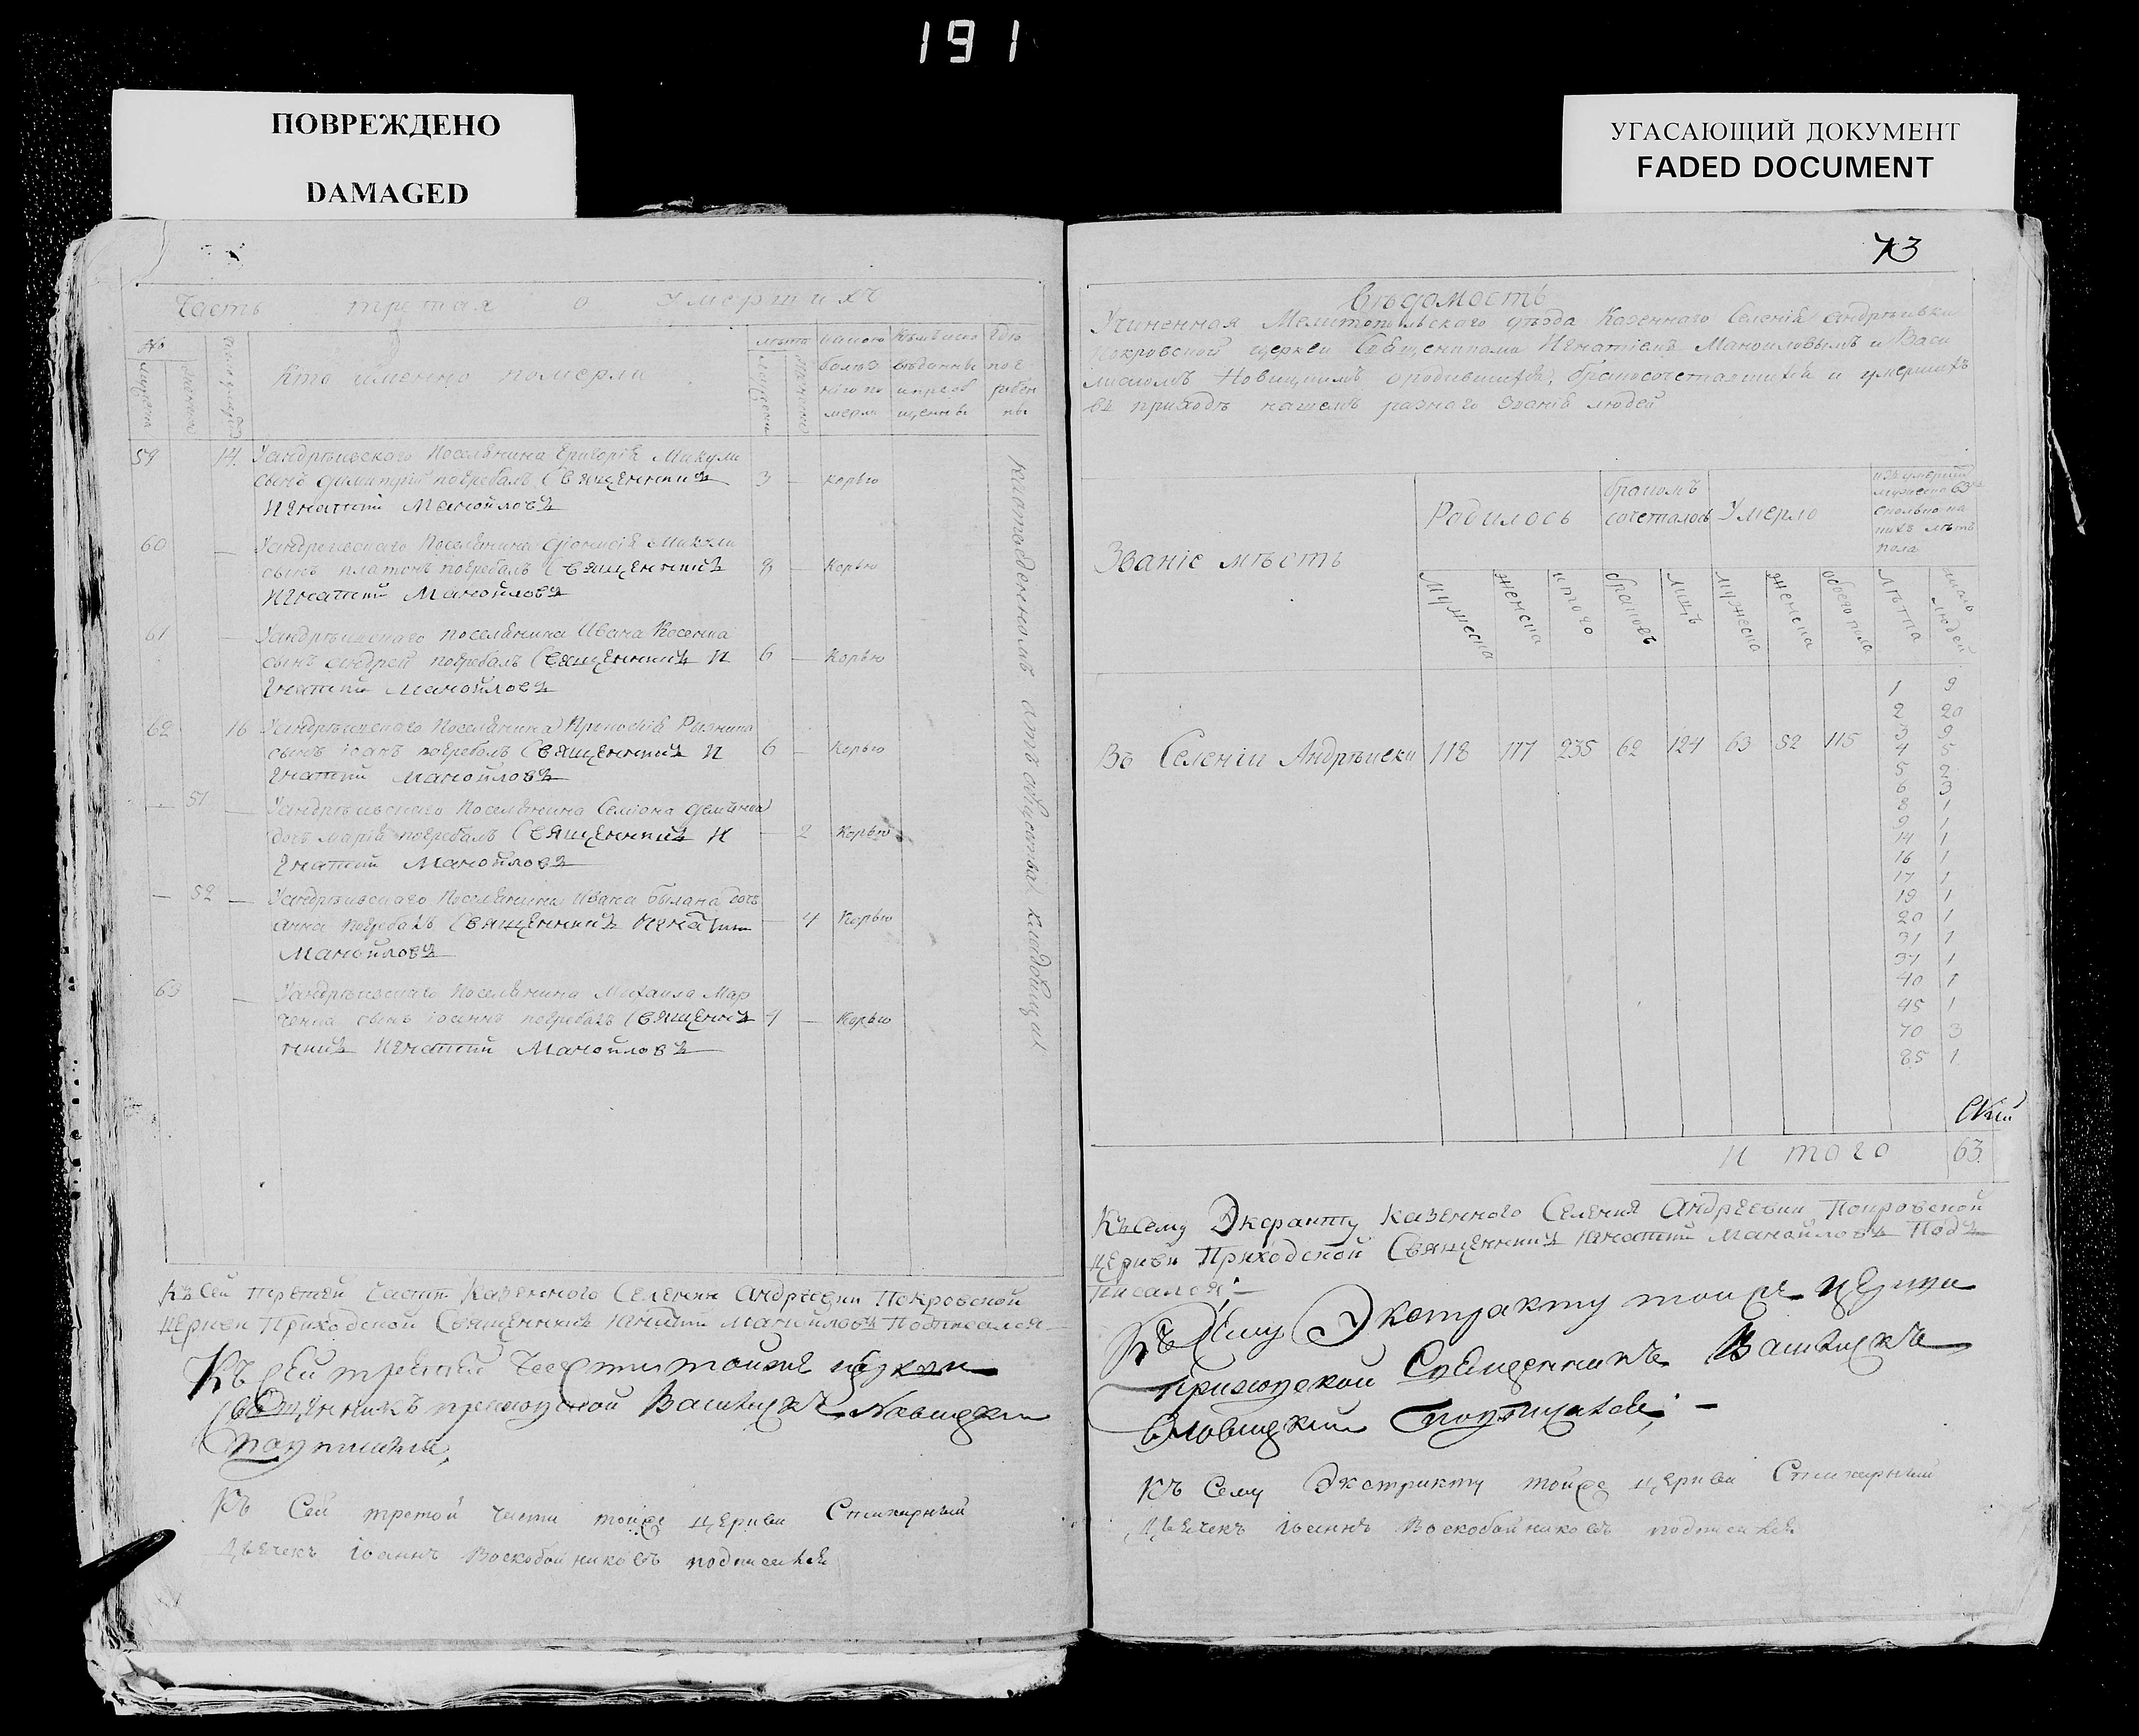 191
ПОВРЕЖДЕНО
DAMAGED
УГАСАЮЩИЙ ДОКУМЕНТ
FADED DOCUMENT
Часть третая о умершихъ
№
Кто именно померли
лѣтъ
какою болѣзнію померли
погребены
59 14 Уандрѣивского Поселянина Григорія Микули
сынъ Димитрій погребалъ Священникъ 3 — Корью
Игнатий Манойловъ
60 — Уандрѣивского Поселянина Діонисія Микули
сынъ платонъ погребалъ Священникъ 8 — Корью
Игнатий Манойловъ
61 — Уандрѣивского поселянина Ивана Косенка
сынъ андрей погребалъ Священникъ И 6 — Корью
гнатий Манойловъ
62 16 Уандрѣивского Поселянина
сынъ іоанъ погребалъ Священникъ И 6 — Корью
гнатий Манойловъ
— 51 — Уандрѣивского Поселянина Семіона
дочь марія погребалъ Священникъ И — 2 Корью
гнатий Манойловъ
— 52 — Уандрѣивского Поселянина Ивана Былана дочь
анна погребалъ Священникъ Игнатий — 4 Корью
Манойловъ
63 — Уандрѣивского Поселянина Михаила Мар
ченка сынъ іоаннъ погребалъ Священ 4 — Корью
никъ Игнатий Манойловъ
на отведенномъ отъ общества кладбищи
Къ Сей третей Части Казенного Селения Андреевки Покровской
церкви Приходской Священникъ Игнатий Манойловъ Подписался
Къ сей третей Части тойже церкви
Священникъ приходской Василий Новицкий
подписался
Къ Сей третой части тойже церкви Стихарный
Дьячекъ Іоаннъ Воскобойниковъ подписался
73
Вѣдомость
Учиненная Мелитопольского уѣзда Казенного Селенія андрѣивки
Покровской церкви Священниками Игнатіемъ Манойловымъ и Васи
лиемъ Новицкимъ о родившихся, бракосочетавшихся и умершихъ
въ приходѣ нашемъ разного званія людей
Званіе мѣстъ
Родилось
бракомъ сочеталось
Умерло
мужеска
женска
итого
браковъ
лицъ
мужеска
женска
обоего пола
лѣта
людей
Въ Селеніи Андрѣивки 118 117 235 62 124 63 52 115
1 9
2 20
3 9
4 5
5 2
6 3
8 1
9 1
14 1
16 1
17 1
19 1
20 1
31 1
37 1
40 1
45 1
70 3
85 1
Итого 63
Къ Сему Экстракту казенного Селения Андреевки Покровской
церкви Приходской Священникъ Игнатий Манойловъ Подъ
писался
Къ Сему Экстракту тойже церкви
приходской Священникъ Василий
Новицкий подписался
Къ Сему Экстракту тойже церкви Стихарный
Дьячекъ Іоаннъ Воскобойниковъ подписался